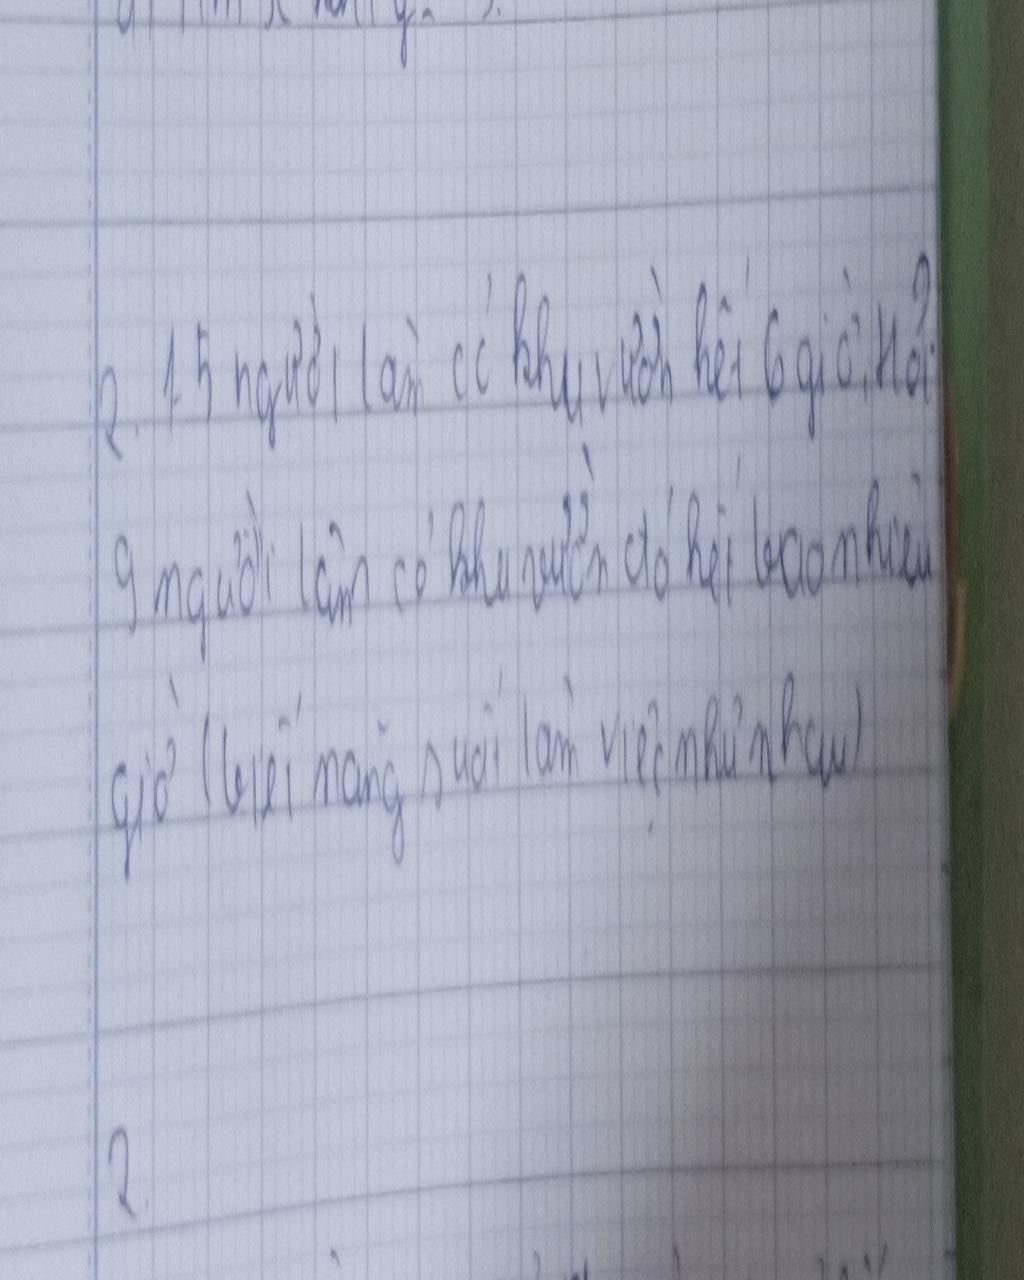 2. 15 người làm cỏ khu vườn hết 6 giờ. Hỏi
9 người làm cỏ khu vườn đó hết bao nhiêu
giờ (biết năng suất làm việc như nhau)
2.